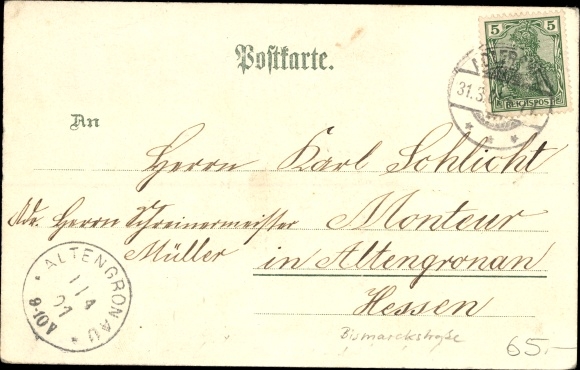 Postkarte.
5 5
REICHSPOST
31.3.
An
Herrn Karl Schlicht
Adr. Herrn Schreinermeister Monteur
Müller in Altengronau
Hessen
ALTENGRONAU
1/4
01
9-10V
Bismarckstraße
65.-